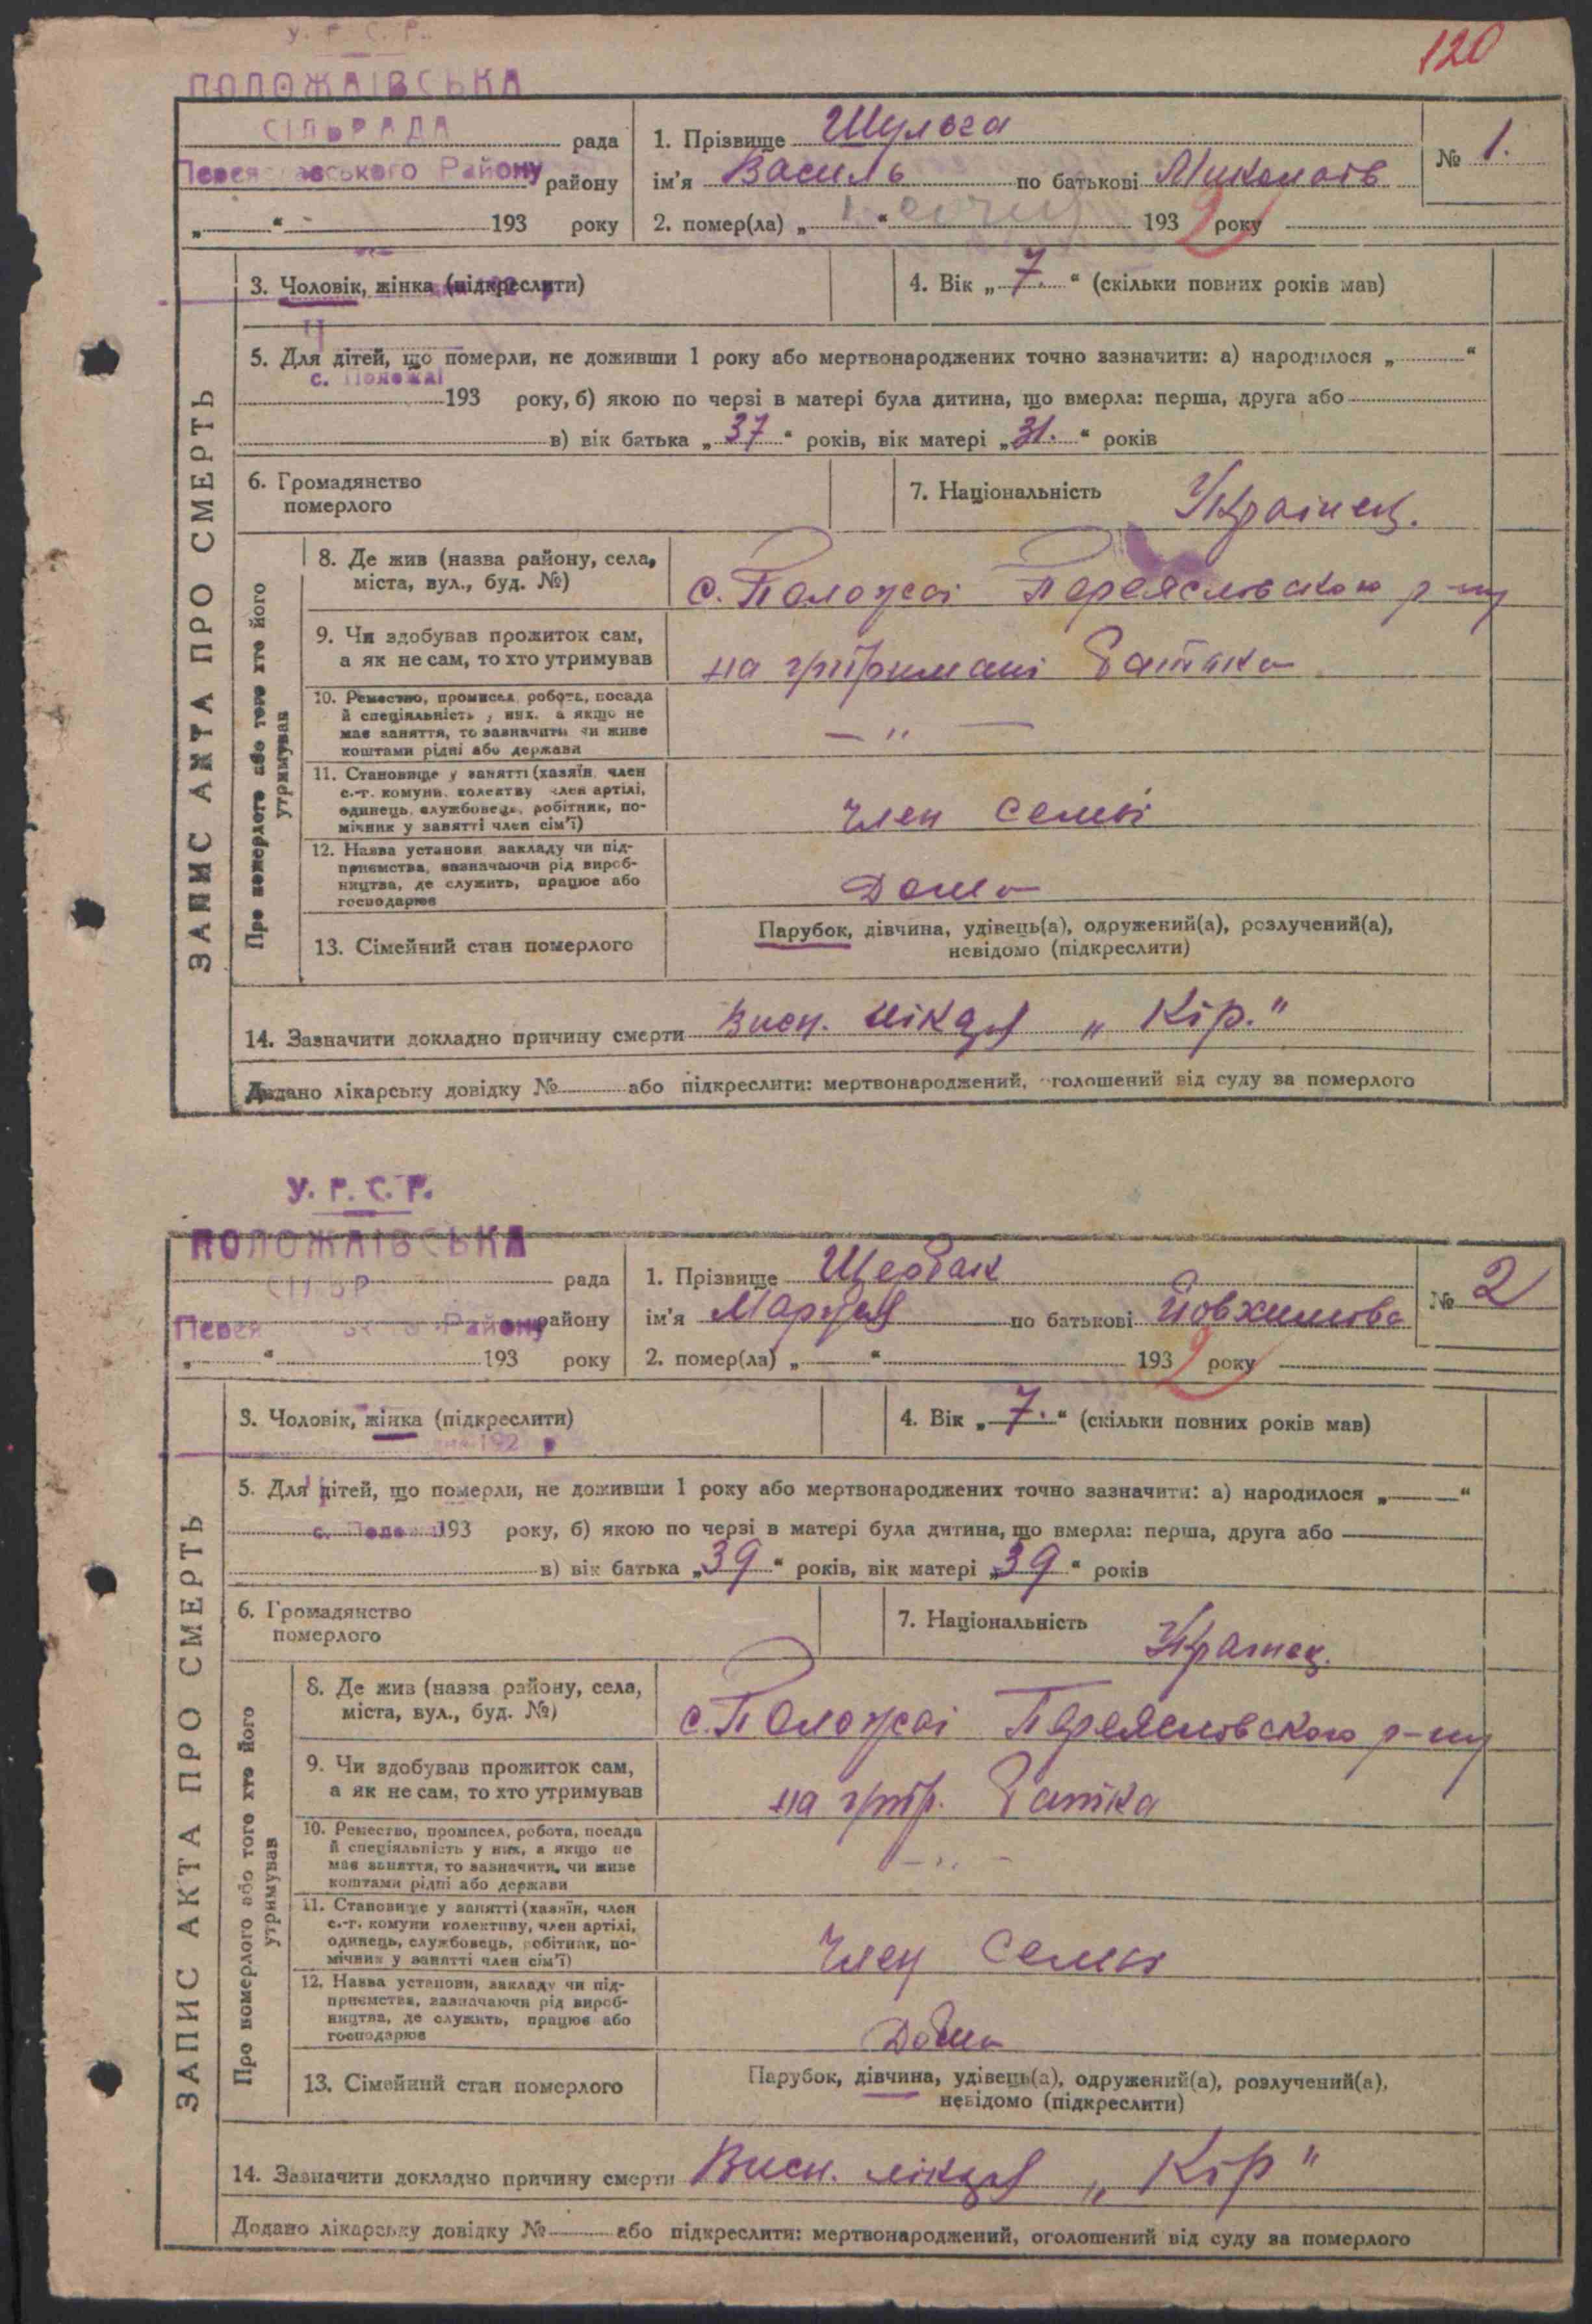 У. Р. С. Р.
120
ПОЛОЖАІВСЬКА
СІЛЬРАДА рада
Переяславського Району району
„ “ 193 року
1. Прізвище Шульга
ім'я Василь по батькові Миколаїв
№ 1.
2. помер(ла) „ “ 1932 року
3. Чоловік, жінка (підкреслити)
4. Вік „ 7. “ (скільки повних років мав)
5. Для дітей, що померли, не доживши 1 року або мертвонароджених точно зазначити: а) народилося „ “
с. Положаї
193 року, б) якою по черзі в матері була дитина, що вмерла: перша, друга або
в) вік батька „ 37 “ років, вік матері „ 31. “ років
6. Громадянство
померлого
7. Національність Украінец.
ЗАПИС АКТА ПРО СМЕРТЬ
Про померлого або того хто його
утримував
8. Де жив (назва району, села,
міста, вул., буд. №)
с. Положаі Переясловского р-ну
9. Чи здобував прожиток сам,
а як не сам, то хто утримував
на утримані батька
10. Ремество, промисел, робота, посада
й спеціяльність у них, а якщо не
має заняття, то зазначити чи живе
коштами рідні або держави
— „ —
11. Становище у занятті (хазяїн, член
с.-г. комуни, колективу член артілі,
одинець, службовець, робітник, по-
мічник у занятті член сім'ї)
член семьі
12. Назва установи, закладу чи під-
приємства, зазначаючи рід вироб-
ництва, де служить, працює або
господарює
Дома
13. Сімейний стан померлого
Парубок, дівчина, удівець(а), одружений(а), розлучений(а),
невідомо (підкреслити)
14. Зазначити докладно причину смерти Висн. лікаря „ Кір."
Додано лікарську довідку № або підкреслити: мертвонароджений, оголошений від суду за померлого
У. Р. С. Р.
ПОЛОЖАІВСЬКА
СІЛЬР рада
Перея Району району
„ “ 193 року
1. Прізвище Щербак
ім'я Марія по батькові Йовхимова
№ 2
2. помер(ла) „ “ 1932 року
3. Чоловік, жінка (підкреслити)
192 р
4. Вік „ 7. “ (скільки повних років мав)
5. Для дітей, що померли, не доживши 1 року або мертвонароджених точно зазначити: а) народилося „ “
с. Положа 193 року, б) якою по черзі в матері була дитина, що вмерла: перша, друга або
в) вік батька „ 39 “ років, вік матері „ 39 “ років
6. Громадянство
померлого
7. Національність
ЗАПИС АКТА ПРО СМЕРТЬ
Про померлого або того хто його
утримував
8. Де жив (назва району, села,
міста, вул., буд. №)
с. Положаі Переясловского р-ну
9. Чи здобував прожиток сам,
а як не сам, то хто утримував
на утр. батька
10. Ремество, промисел, робота, посада
й спеціяльність у них, а якщо не
має заняття, то зазначити, чи живе
коштами рідні або держави
— „ —
11. Становище у занятті (хазяїн, член
с.-г. комуни колективу, член артілі,
одинець, службовець, робітник, по-
мічник у занятті член сім'ї)
член семьі
12. Назва установи, закладу чи під-
приємства, зазначаючи рід вироб-
ництва, де служить, працює або
господарює
Дома
13. Сімейний стан померлого
Парубок, дівчина, удівець(а), одружений(а), розлучений(а),
невідомо (підкреслити)
14. Зазначити докладно причину смерти Висн. лікаря „ Кір"
Додано лікарську довідку № або підкреслити: мертвонароджений, оголошений від суду за померлого